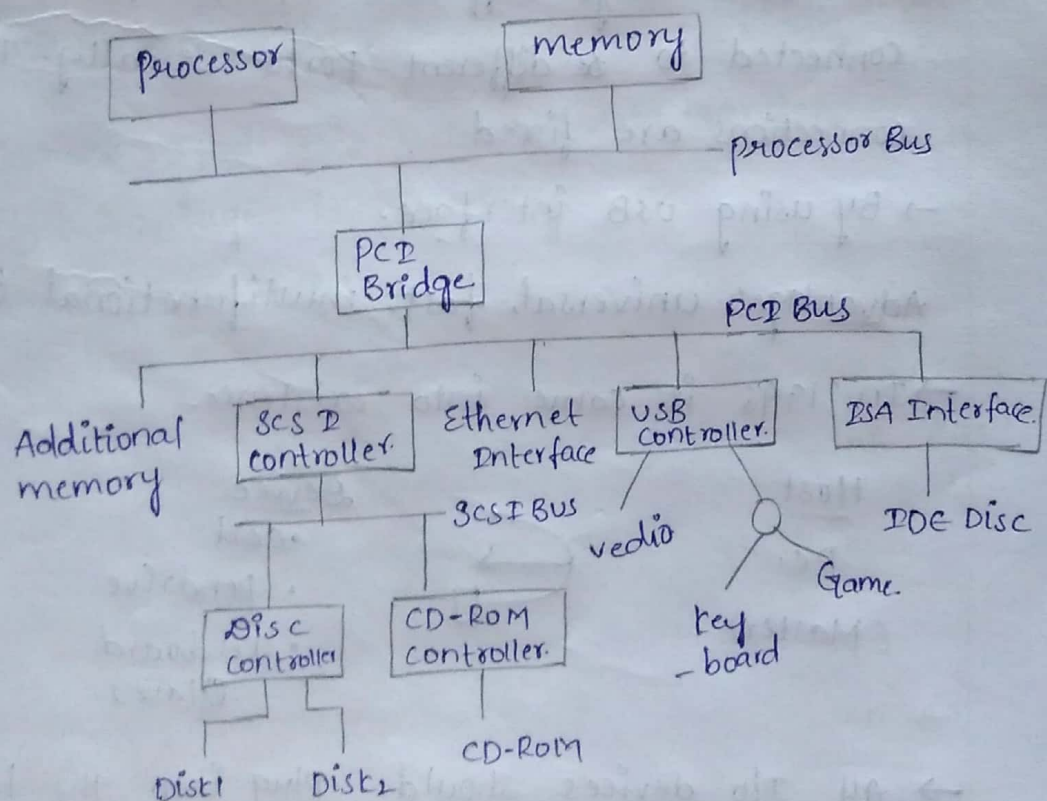 Processor
memory
processor Bus
PCI
Bridge
PCI BUS
Additional
memory
SCSI
controller.
Ethernet
Interface
USB
controller.
ISA Interface.
SCSI BUS
vedio
IDE Disc
Game.
key
-board
Disc
controller
CD-ROM
controller.
CD-ROM
Disk1
Disk2